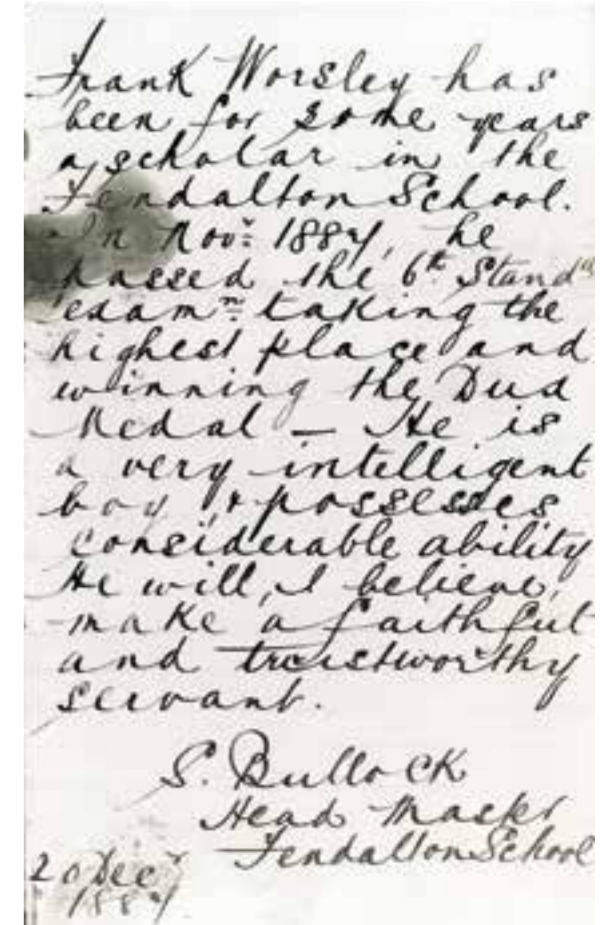 Frank Worsley has
been for some years
a scholar in the
Fendalton School.
In Novr. 1887, he
passed the 6th Standd
examn. taking the
highest place and
winning the Dux
Medal — He is
a very intelligent
boy, & possesses
considerable ability
He will, I believe,
make a faithful
and trustworthy
servant.
S. Bullock
Head Master
Fendalton School
20 Decr
1887